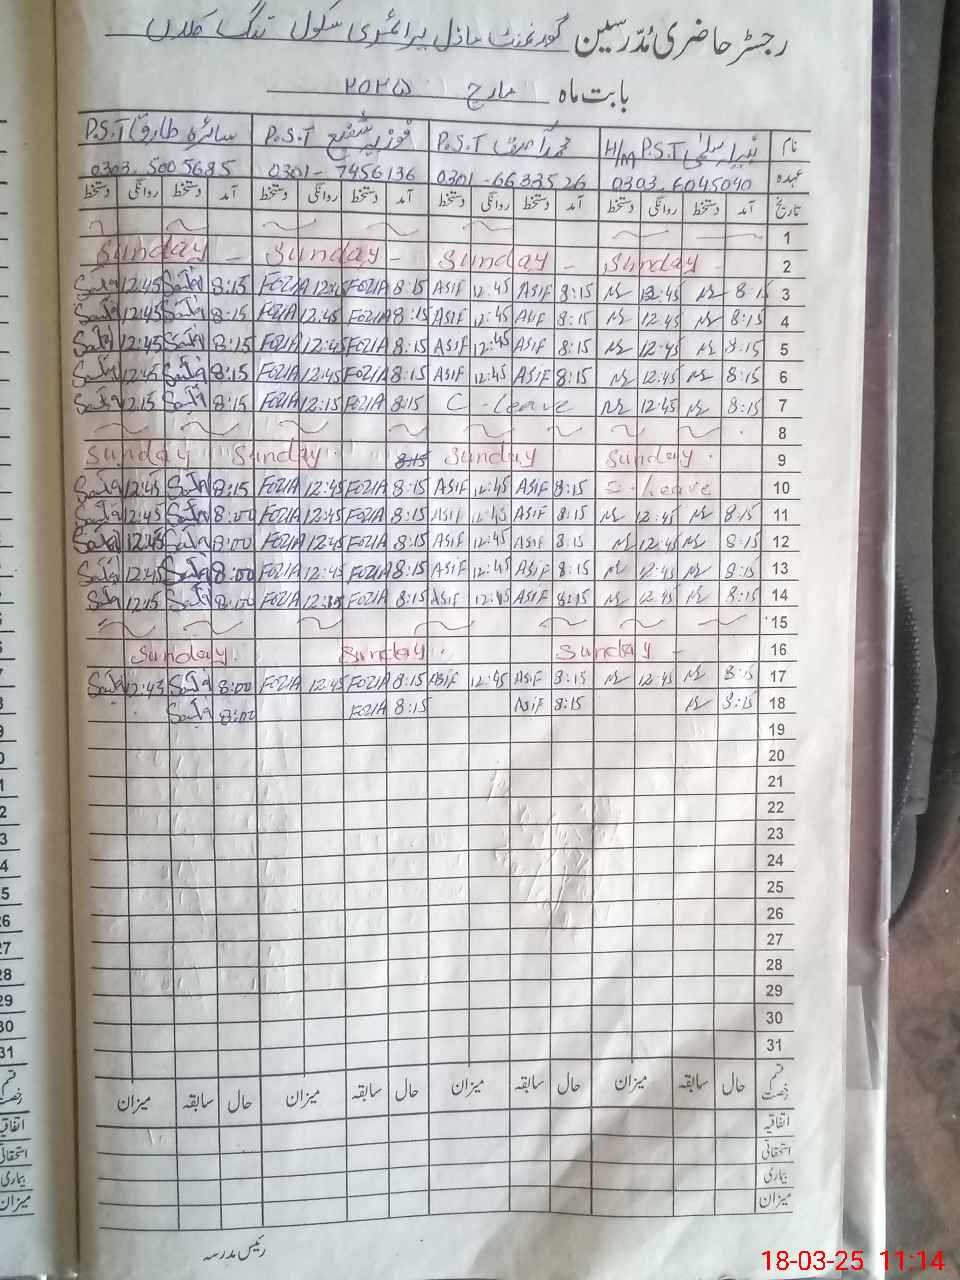 رجسٹر حاضری مُدرّسین گورنمنٹ ماڈل پرائمری سکول تنگ کلاں
بابت ماہ مارچ ۲۰۲۵
نام H/M P.S.T محمد آصف P.S.T فوزیہ شفیع P.S.T سائرہ طارق P.S.T
عہدہ 0303.6045040 0301-6633526 0301-7456136 0303.5005685
تاریخ آمد دستخط روانگی دستخط آمد دستخط روانگی دستخط آمد دستخط روانگی دستخط آمد دستخط روانگی دستخط
1
Sunday Sunday Sunday Sunday 2
12:45 8:15 FOZIA 12:45 FOZIA 8:15 ASIF 12:45 ASIF 8:15 12:45 8:15 3
12:45 8:15 FOZIA 12:45 FOZIA 8:15 ASIF 12:45 ASIF 8:15 12:45 8:15 4
12:45 8:15 FOZIA 12:45 FOZIA 8:15 ASIF 12:45 ASIF 8:15 12:45 8:15 5
12:45 8:15 FOZIA 12:45 FOZIA 8:15 ASIF 12:45 ASIF 8:15 12:45 8:15 6
12:15 8:15 FOZIA 12:15 FOZIA 8:15 C-Leave 12:45 8:15 7
8
Sunday Sunday 8:15 Sunday Sunday 9
12:45 8:15 FOZIA 12:45 FOZIA 8:15 ASIF 12:45 ASIF 8:15 Leave 10
12:45 8:00 FOZIA 12:45 FOZIA 8:15 ASIF 12:45 ASIF 8:15 12:45 8:15 11
12:45 8:00 FOZIA 12:45 FOZIA 8:15 ASIF 12:45 ASIF 8:15 12:45 8:15 12
12:45 8:00 FOZIA 12:45 FOZIA 8:15 ASIF 12:45 ASIF 8:15 12:45 8:15 13
12:15 8:00 FOZIA FOZIA 8:15 ASIF 12:45 ASIF 8:15 12:45 8:15 14
15
Sunday Sunday Sunday 16
12:45 8:00 FOZIA 12:45 FOZIA 8:15 ASIF 12:45 ASIF 8:15 12:45 8:15 17
8:00 FOZIA 8:15 ASIF 8:15 8:15 18
19
20
21
22
23
24
25
26
27
28
29
30
31
قسم رخصت حال سابقہ میزان حال سابقہ میزان حال سابقہ میزان حال سابقہ میزان
اتفاقیہ
استحقاقی
بیماری
میزان
رئیس مدرسہ
18-03-25 11:14